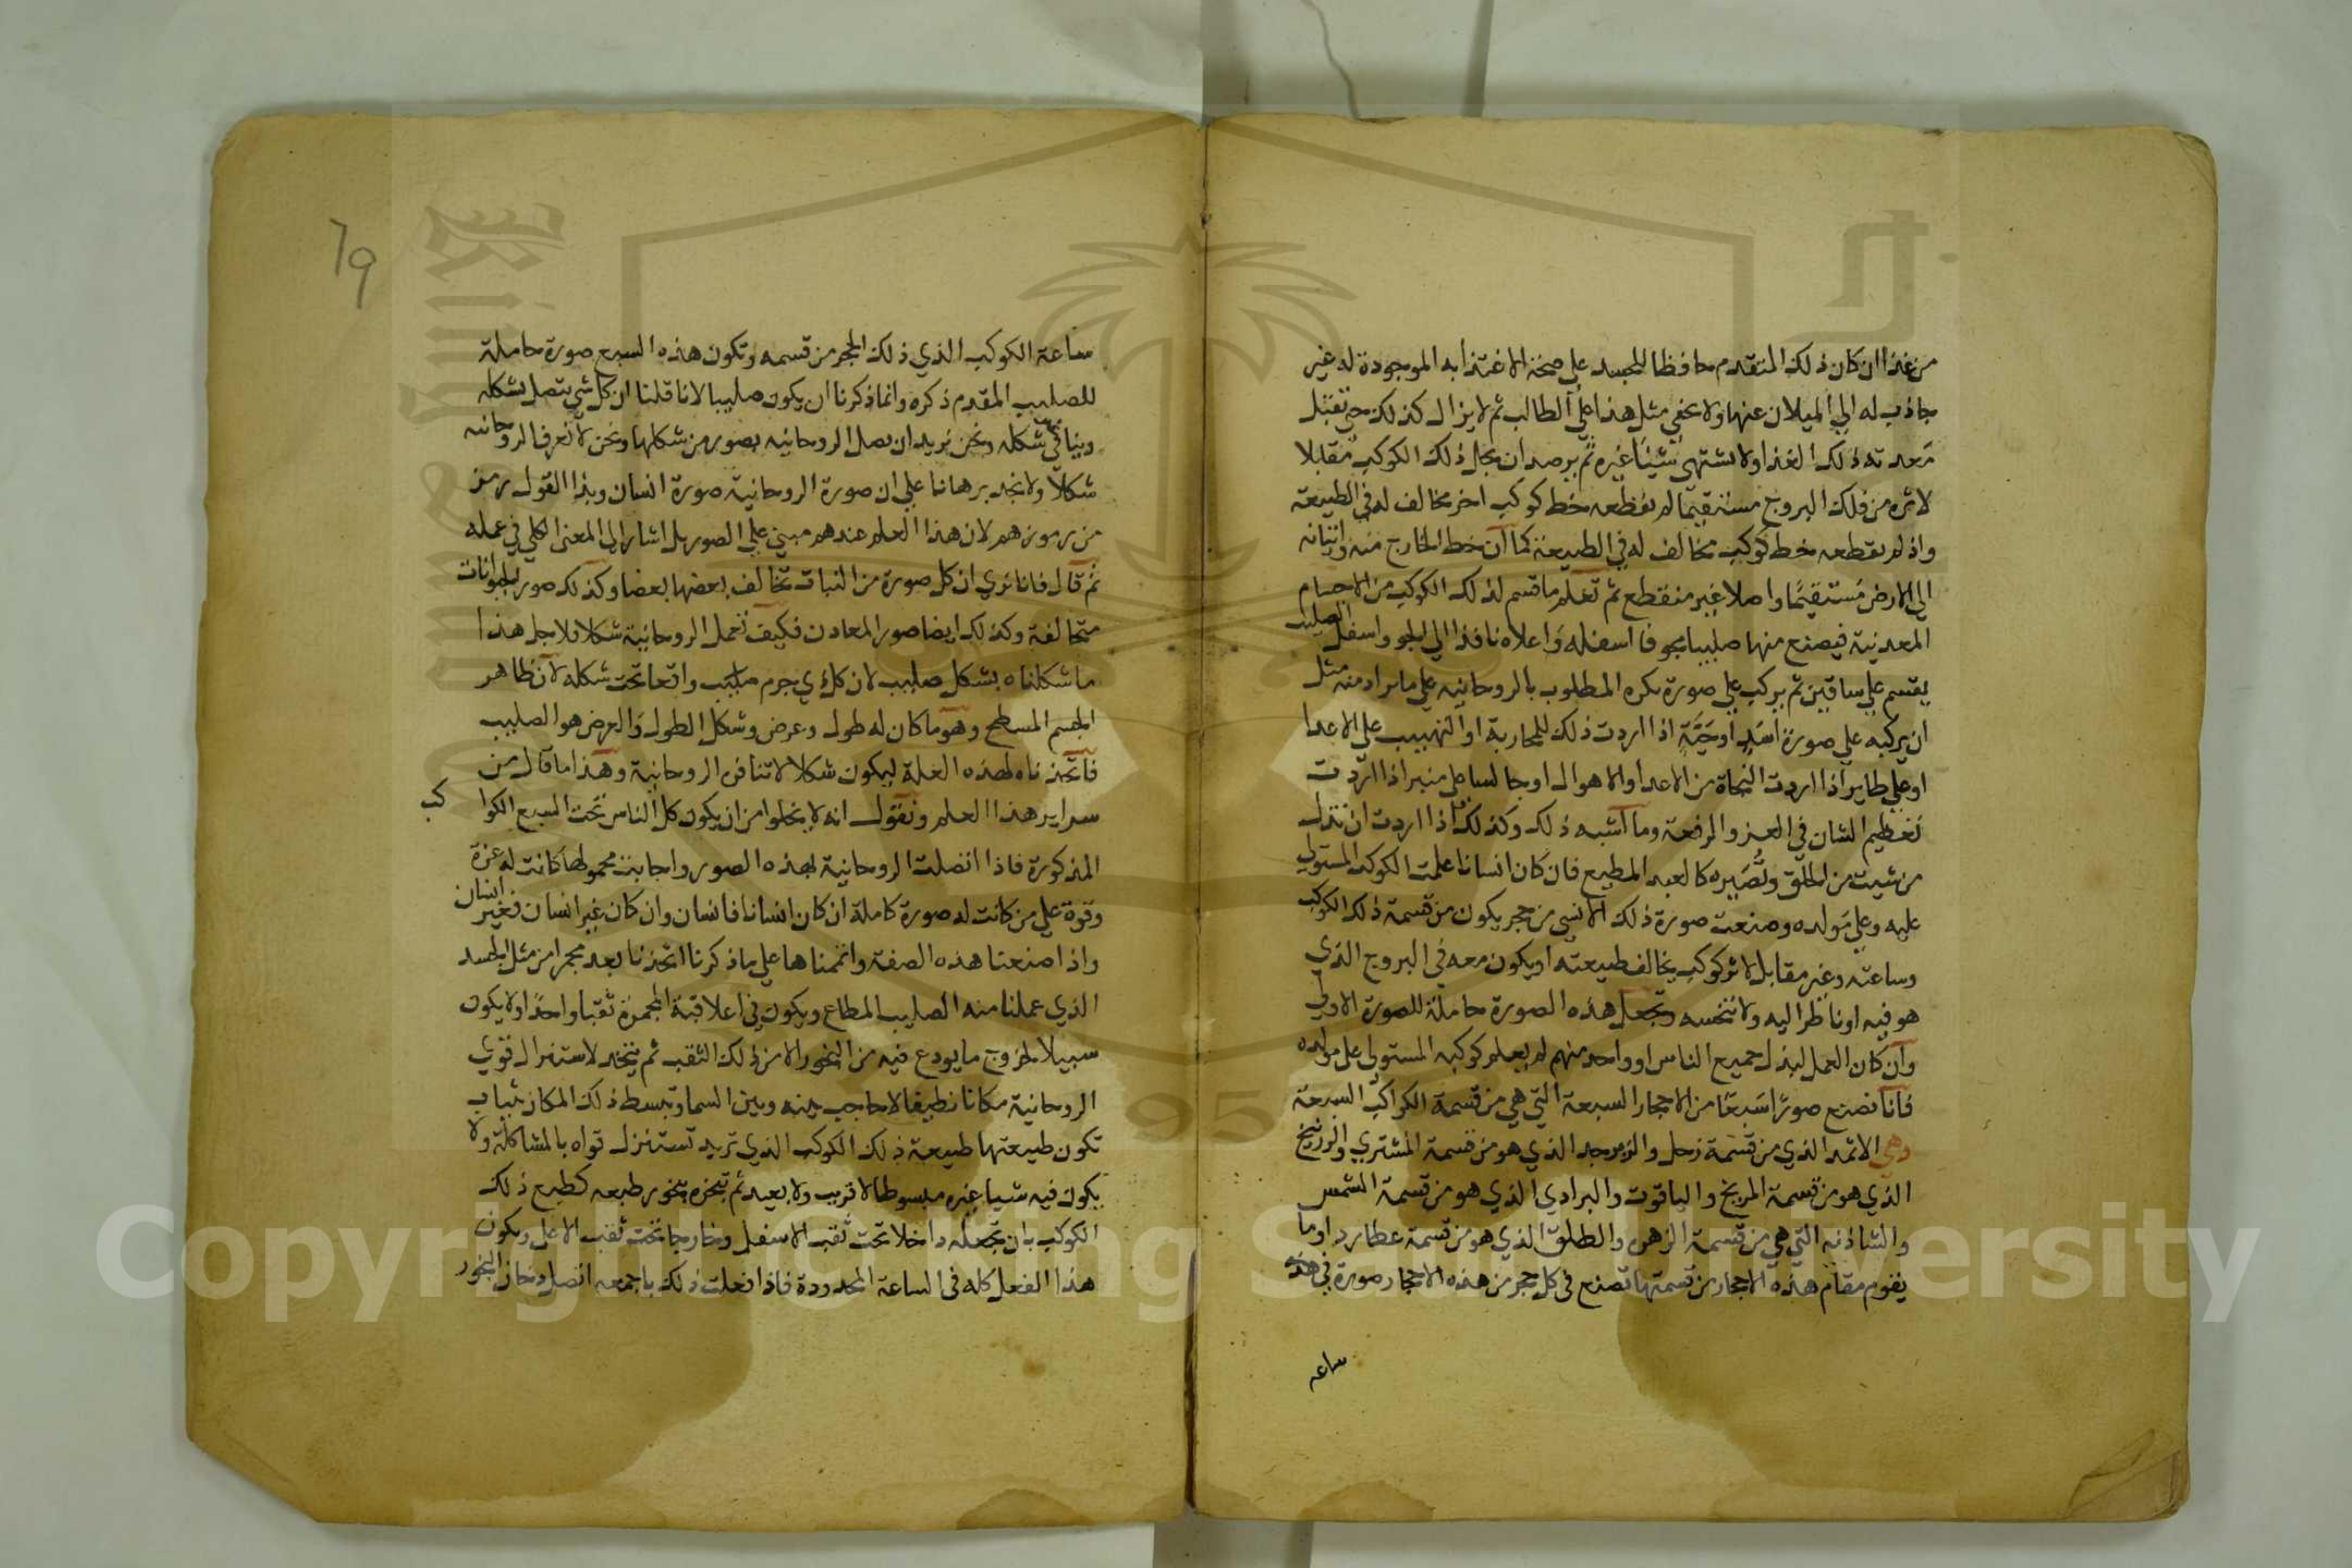 من غذا ان كان ذلك المتقدم محافظا للجسد على صحة الاغتذا به الموجودة له غير
جاذب له الي الميلان عنها ولا يخفي مثل هذا علي الطالب ثم لا يزال كذلك حتي تقبل
معدته ذلك الغذا ولا يشتهي شيئا غيره ثم يرصد ان يحل ذلك الكوكب مقابلا
لاثره من فلك البروج مستقيما لم يقطعه خط كوكب اخر مخالف له في الطبيعة
واذ لم يقطعه خط كوكب مخالف له في الطبيعة كما ان خط الخارج منه واتيانه
الي الارض مستقيما واصلا غير منقطع ثم تعلم ما قسم لذلك الكوكب من الاجسام
المعدنية فيصنع منها صليبا مجوفا اسفله واعلاه نافذا الي الجو واسفل الصليب
يقسم علي ساقين ثم يركب علي صورة يكره المطلوب بالروحانيه علي ما يراد منه مثل
ان يركبه علي صورة اسد او حية اذا اردت ذلك للمحاربة او التهييب علي الاعدا
او علي طاير اذا اردت النجاة من الاعدا والاهوال او جالسا علي منبر اذا اردت
تعظيم الشان في العز والرفعة وما اشبه ذلك وكذلك اذا اردت ان تذل
من شيت من الخلق وتصيره كالعبد المطيع فان كان انسانا علمت الكوكب المستولي
عليه وعلي مولده وصنعت صورة ذلك الانسي من حجر يكون من قسمة ذلك الكوكب
وساعته وغير مقابل لاثر كوكب يخالف طبيعته او يكون معه في البروج الذي
هو فيه او ناظرا اليه ولا تنحسه وتجعل هذه الصورة حاملة للصورة الاولي
وان كان العمل لبذل جميع الناس او واحد منهم لم يعلم كوكبه المستولي علي مولده
فانا نصنع صورا سبعا من الاحجار السبعة التي هي من قسمة الكواكب السبعة
وهي الاثمد الذي من قسمة زحل والزبرجد الذي هو من قسمة المشتري والزرنيخ
الذي هو من قسمة المريخ والياقوت والبرادي الذي هو من قسمة الشمس
والشاذنه التي هي من قسمة الزهره والطلق الذي هو من قسمة عطارد او ما
يقوم مقام هذه الاحجار من قسمتها تصنع في كل حجر من هذه الاحجار صورة في هذه
ساعه
69
ساعة الكوكب الذي ذلك الحجر من قسمه وتكون هذه السبع صورة حاملة
للصليب المقدم ذكره وانما ذكرنا ان يكون صليبا لانا قلنا ان كل شي يتصل بشكله
وينافي شكله ونحن نريد ان يصل الروحانيه بصور من شكلها ونحن لا نعرف الروحانيه
شكلا ولا نجد برهانا علي ان صورة الروحانية صورة انسان وبذا القول رمز
من رموزهم لان هذا العلم عندهم مبني علي الصور بل اشار الي المعنى الكلي في عمله
ثم قال فانا نري ان كل صورة من النبات تخالف بعضها بعضا وكذلك صور الحيوانات
متخالفة وكذلك ايضا صور المعادن فكيف تعمل الروحانية شكلا فلاجل هذا
ما شكلناه بشكل صليب لان كل ذي جرم واقعا تحت شكله لان ظاهر
الجسم المسطح وهو ما كان له طول وعرض وشكل الطول والعرض هو الصليب
فاتخذناه لهذه العلة ليكون شكلا لا تنافره الروحانية وهذا ما قال من
سراير هذا العلم ونقول انه لا يخلوا من ان يكون كل الناس تحت السبع الكواكب
المذكورة فاذا اتصلت الروحانية بهذه الصور واجابت محمولها كانت له عزة
وقوة علي من كانت له صورة كاملة ان كان انسانا فانسان وان كان غير انسان فغير انسان
واذا صنعنا هذه الصفة واتممناها علي ما ذكرنا اتخذنا بعد مجمرا من مثل الجسد
الذي عملنا منه الصليب المطاع ويكون في اعلا قبة المجمرة ثقبا واحدا ولا يكون
سبيلا لخروج ما يودع فيه من البخور الا من ذلك الثقب ثم يتخذ لاستنزال قوي
الروحانية مكانا نظيفا لا حاجب بينه وبين السما وتبسط ذلك المكان بثياب
تكون طبيعتها طبيعة ذلك الكوكب الذي تريد تستنزل قواه بالمشاكلة ولا
يكون فيه شيا غيره مبسوطا لا قريب ولا بعيد ثم تبخره ببخور طبعه كطبع ذلك
الكوكب بان تجعله داخلا تحت ثقب الاسفل وخارجا تحت ثقب الاعلي ويكون
هذا الفعل كله في الساعة المحدودة فاذا فعلت ذلك باجمعه اتصل دخان البخور
Copyright © King Saud University